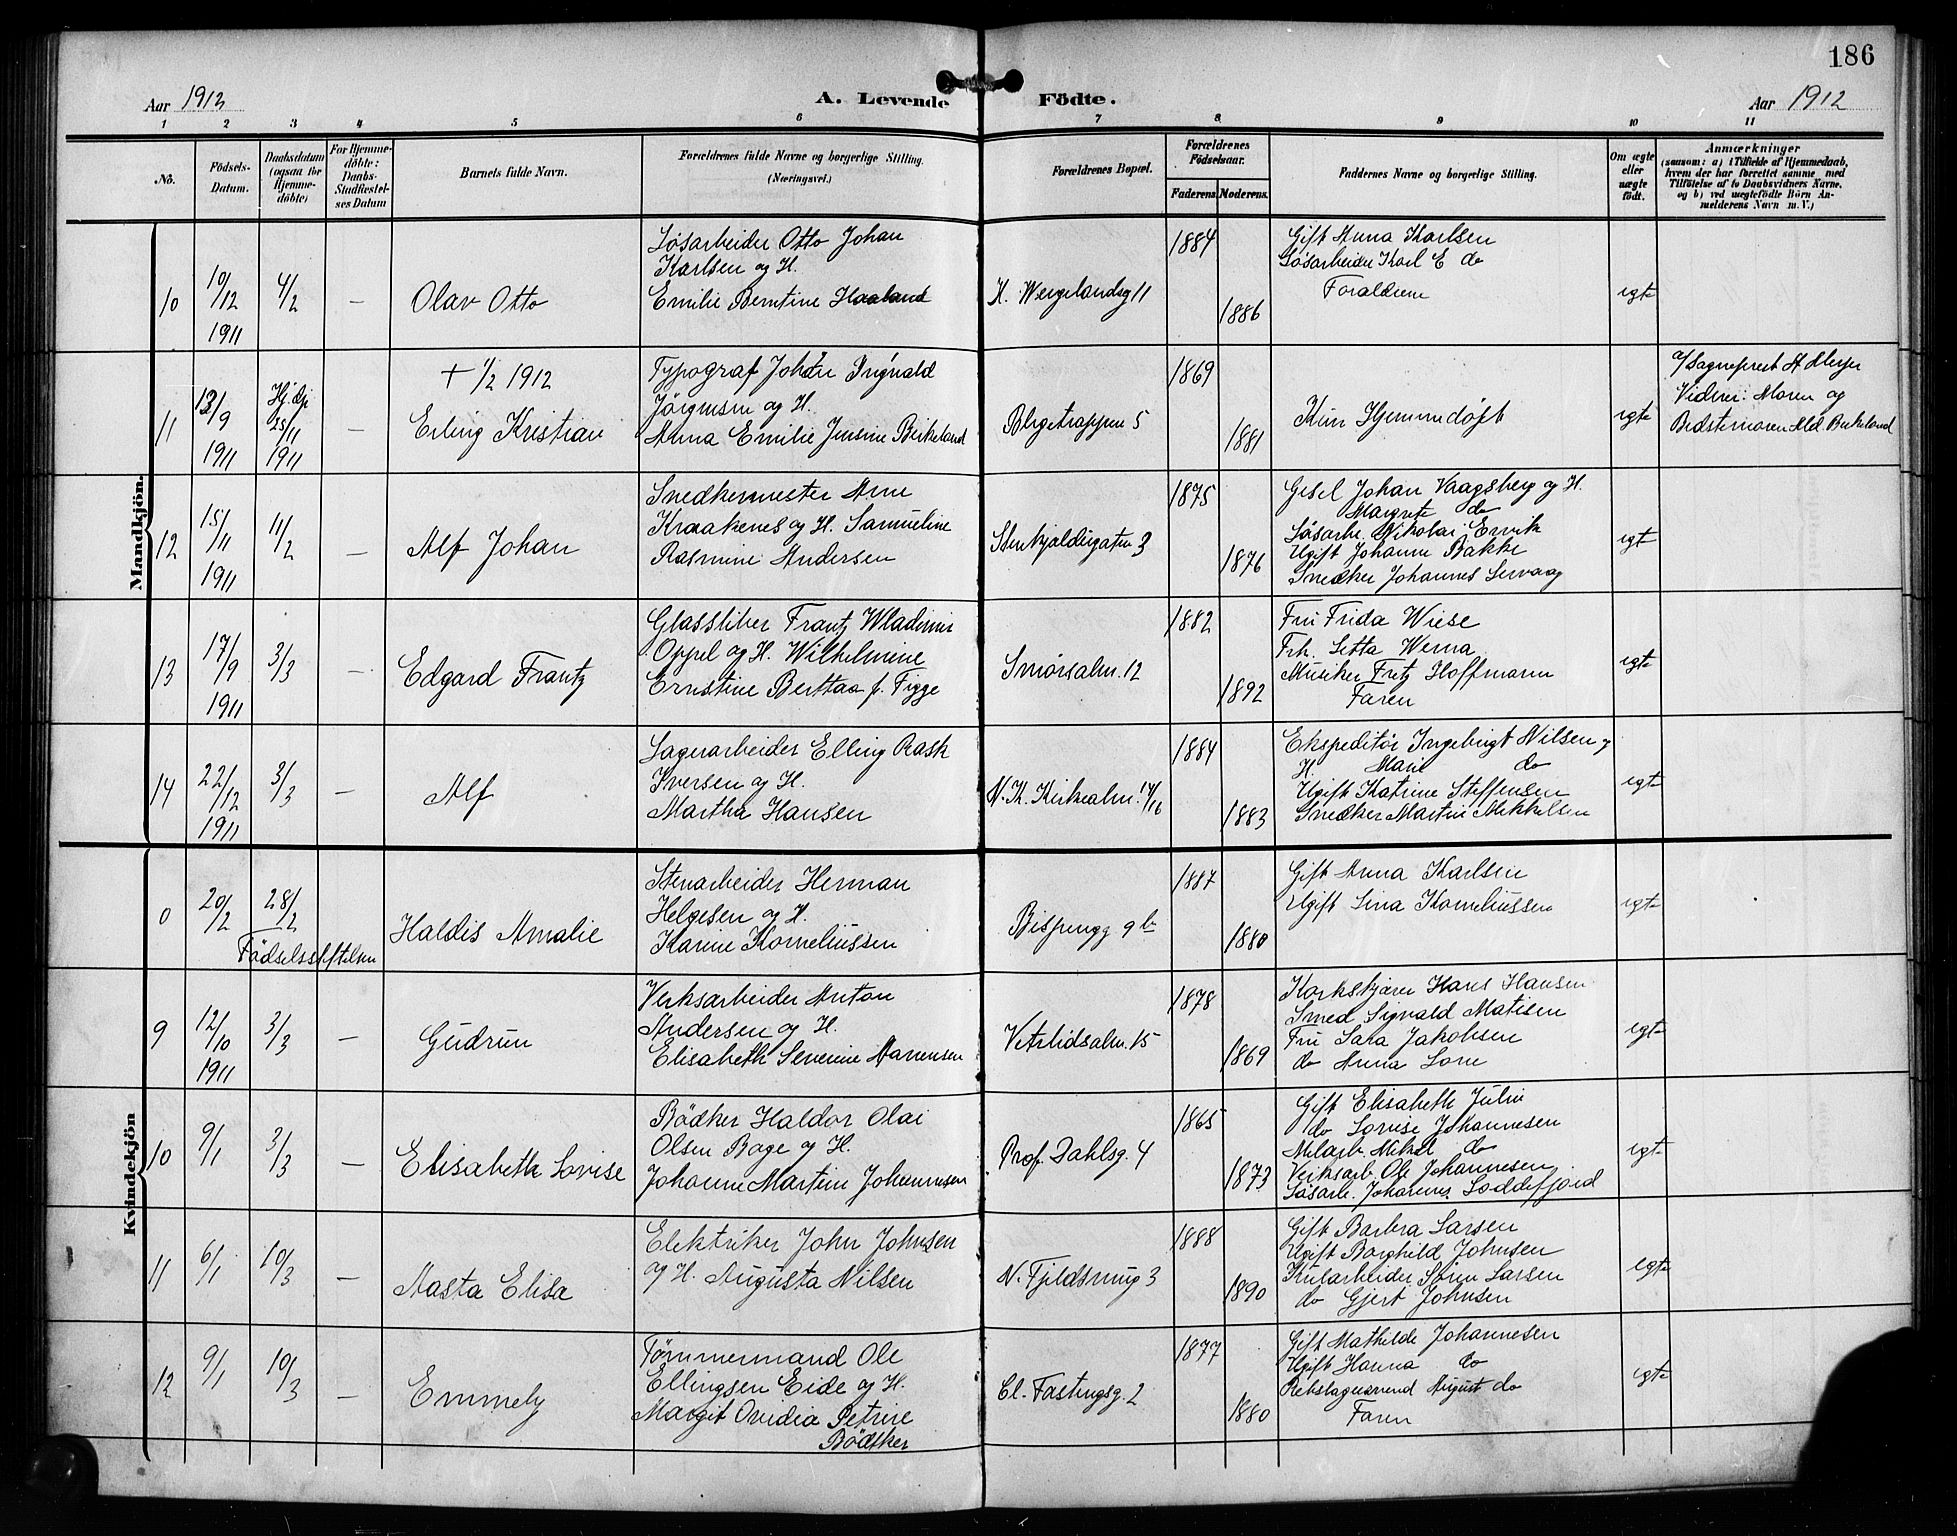 186
Aar 1912 A. Levende Födte. Aar 1912
1 2 3 4 5 6 7 8 9 10 11
No.
Födsels-Datum.
Daabsdatum (ogsaa for Hjemme-døbte)
For Hjemme-døbte: Daabs-Stadfæstel-ses Datum
Barnets fulde Navn.
Forældrenes fulde Navne og borgerlige Stilling. (Næringsvei.)
Forældrenes Bopæl.
Forældrenes Fødselsaar.
Faderens. Moderens.
Faddernes Navne og borgerlige Stilling.
Om ægte eller uægte født.
Anmærkninger
(saasom: a) i Tilfælde af Hjemmedaab, hvem der har forrettet samme, med Tilføielse af to Daabsvidners Navne, og b) ved uægtefødte Börn An-melderens Navn m. V.)
Mandkjön.
10
10/12 1911
4/2
—
Olav Otto
Løsarbeider Otto Johan
Karlsen og H.
Emilie Berntine Haaland
H. Wergelandsg 11
1884
1886
Gift Anna Karlsen
Løsarbeider Karl E do
Foraldrene
egte
11
13/9 1911
Hj.dp 25/11 1911
—
+ 1/2 1912
Erling Kristian
Typograf Johan Ingvald
Jörgensen og H.
Anna Emilie Jensine Birkeland
Blegetrappen 5
1869
1881
Kun Hjemmedøpt
egte
a/Sagneprest A Meyer
Vidner: Moren og
Bedstemoren Mld. Birkeland
12
15/11 1911
11/2
—
Alf Johan
Snedkermester Arne
Kraakenes og H. Samueline
Rasmine Andersen
Stenkjeldergaten 3
1875
1876
Gesel Johan Vaagsberg og H.
Margrete do
Løsarb. Nikolai Ervik
Ugift Johanne Bakke
Snedker Johannes Servaag
egte
13
17/9 1911
3/3
—
Edgard Frantz
Glassliber Frantz Wladimir
Oppel og H. Wilhelmine
Ernstine Berttaa f. Figge
Smörsalm. 12
1882
1892
Fru Frida Wiese
Frk. Setta Werna
Musiker Fritz Hoffmann
Faren
egte
14
22/12 1911
3/3
—
Alf
Lagerarbeider Elling Rask
Iversen og H.
Martha Hansen
N. K. Kirkealm. 14/16
1884
1883
Ekspeditør Ingebrigt Nilsen og
H. Marie do
Ugift Katrine Steffensen
Snedker Martin Mikkelsen
egte
Kvindekjön
0
20/2
28/2
Födselsstiftelsen
Haldis Amalie
Stenarbeider Herman
Helgesen og H.
Karine Korneliussen
Bispengg 9 b
1887
1880
Gift Anna Karlsen
Ugift Lina Korneliussen
egte
9
12/10 1911
3/3
—
Gudrun
Verksarbeider Anton
Andersen og H.
Elisabeth Severine Marensen
Vetrlidsalm. 15
1878
1869
Korkskjærer Hans Hansen
Smed Sigvald Matisen
Fru Sara Jakobsen
do Anna Lone
egte
10
9/1
3/3
—
Elisabeth Lovise
Bödker Haldor Olai
Olsen Bage og H.
Johanne Martine Johannesen
Prof. Dahlsg. 4
1865
1873
Gift Elisabeth Julin
do Lovise Johannesen
Melarb. Mikal do
Verksarb. Ole Johannesen
Løsarb. Johannes Loddefjord
egte
11
6/1
10/3
—
Aasta Elisa
Elektriker John Johnsen
og H. Augusta Nilsen
N. Fjeldsmug 3
1888
1890
Gift Barbra Larsen
Ugift Borghild Johnsen
Kularbeider Søren Larsen
do Gjert Johnsen
egte
12
9/1
10/3
—
Emmely
Tømmermand Ole
Ellingsen Eide og H.
Margit Ovidia Petrine
Bödtker
Cl. Fastingsg. 2
1877
1880
Gift Mathilde Johannesen
Ugift Hanna do
Rebslagersvend August do
Faren
egte